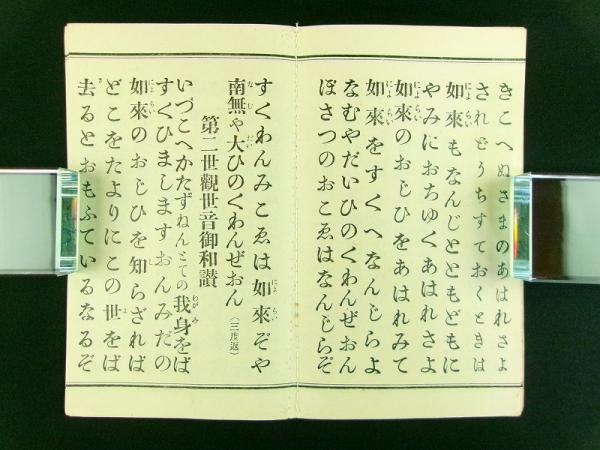 きこへぬさまのあはれさよ
されどうちすておくときは
如來もなんじとともどもに
やみにおちゆくあはれさよ
如來のおじひをあはれみて
如來をすくへなんじらよ
なむやだいひのくわんぜおん
ぼさつのおこゑはなんじらぞ
すくわんみこゑは如來ぞや
南無や大ひのくわんぜおん（三度返）
第二世觀世音御和讃
いづこへかたずねんとての我身をば
すくひましますおんみだの
如來のおじひを知らざれば
どこをたよりにこの世をば
去るとおもふているなるぞ